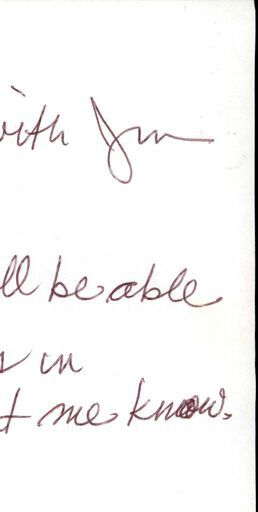 with Jim
ll be able
s in
t me know.